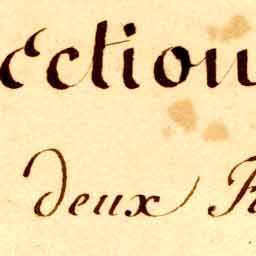 ection
deux F